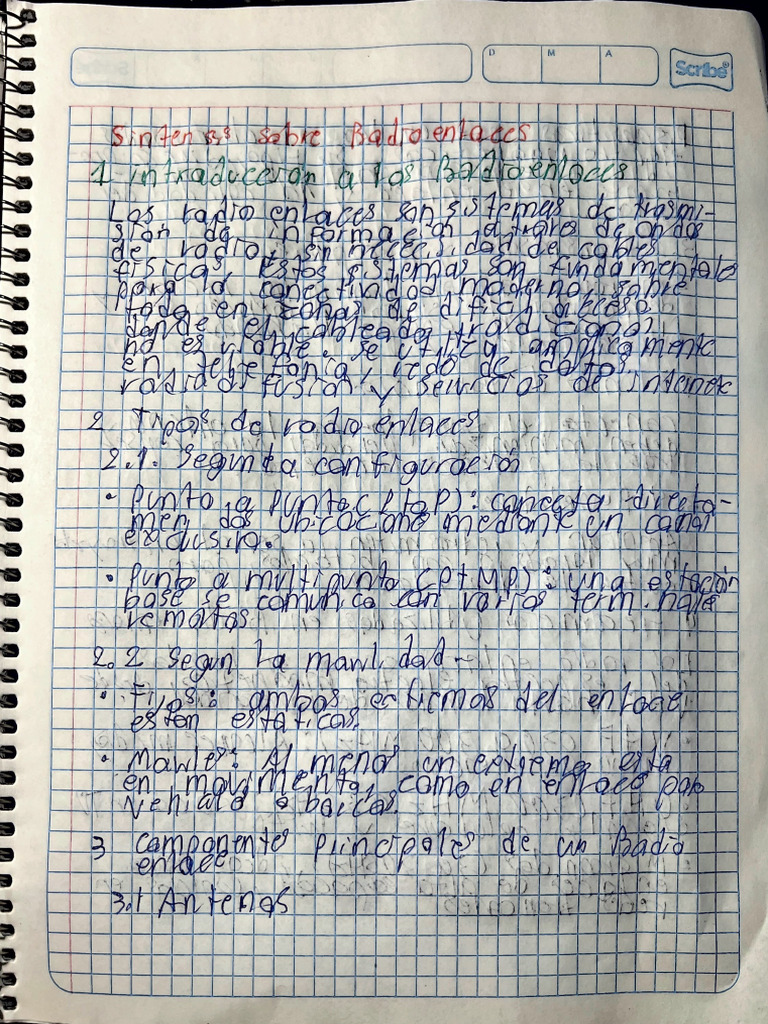 D M A
Scribe
Sintensis sobre Radioenlaces
1 introducción a los Radioenlaces
Los radio enlaces son sistemas de trasmi-
sión de información a traves de ondas
de radio, sin necesidad de cables
físicas estos sistemas son fundamentales
para la conectividad moderna, sobre
todo en zonas de dificil acceso
donde el cableado tradicional
no es viable. se utiliza ampliamente
en telefonia, redo de datos
radiodifusión y servicios de internet
2 Tipos de radio enlaces
2.1. Segun la configuración
• Punto a punto (PtoP): conecta directa-
men dos ubicacione mediante un canal
exclusivo.
• Punto a multipunto (PtMP): una estación
base se comunica con varios terminale
remotas
2.2 Segun la mawlidad-
• Fijos: ambos extremos del enlace
están estáticas
• Mawles: Al menos un extremo esta
en movimiento, como en enlace pap
vehiculo o barcos.
3 Componentes principales de un Radio
enlace
3.1 Antenas